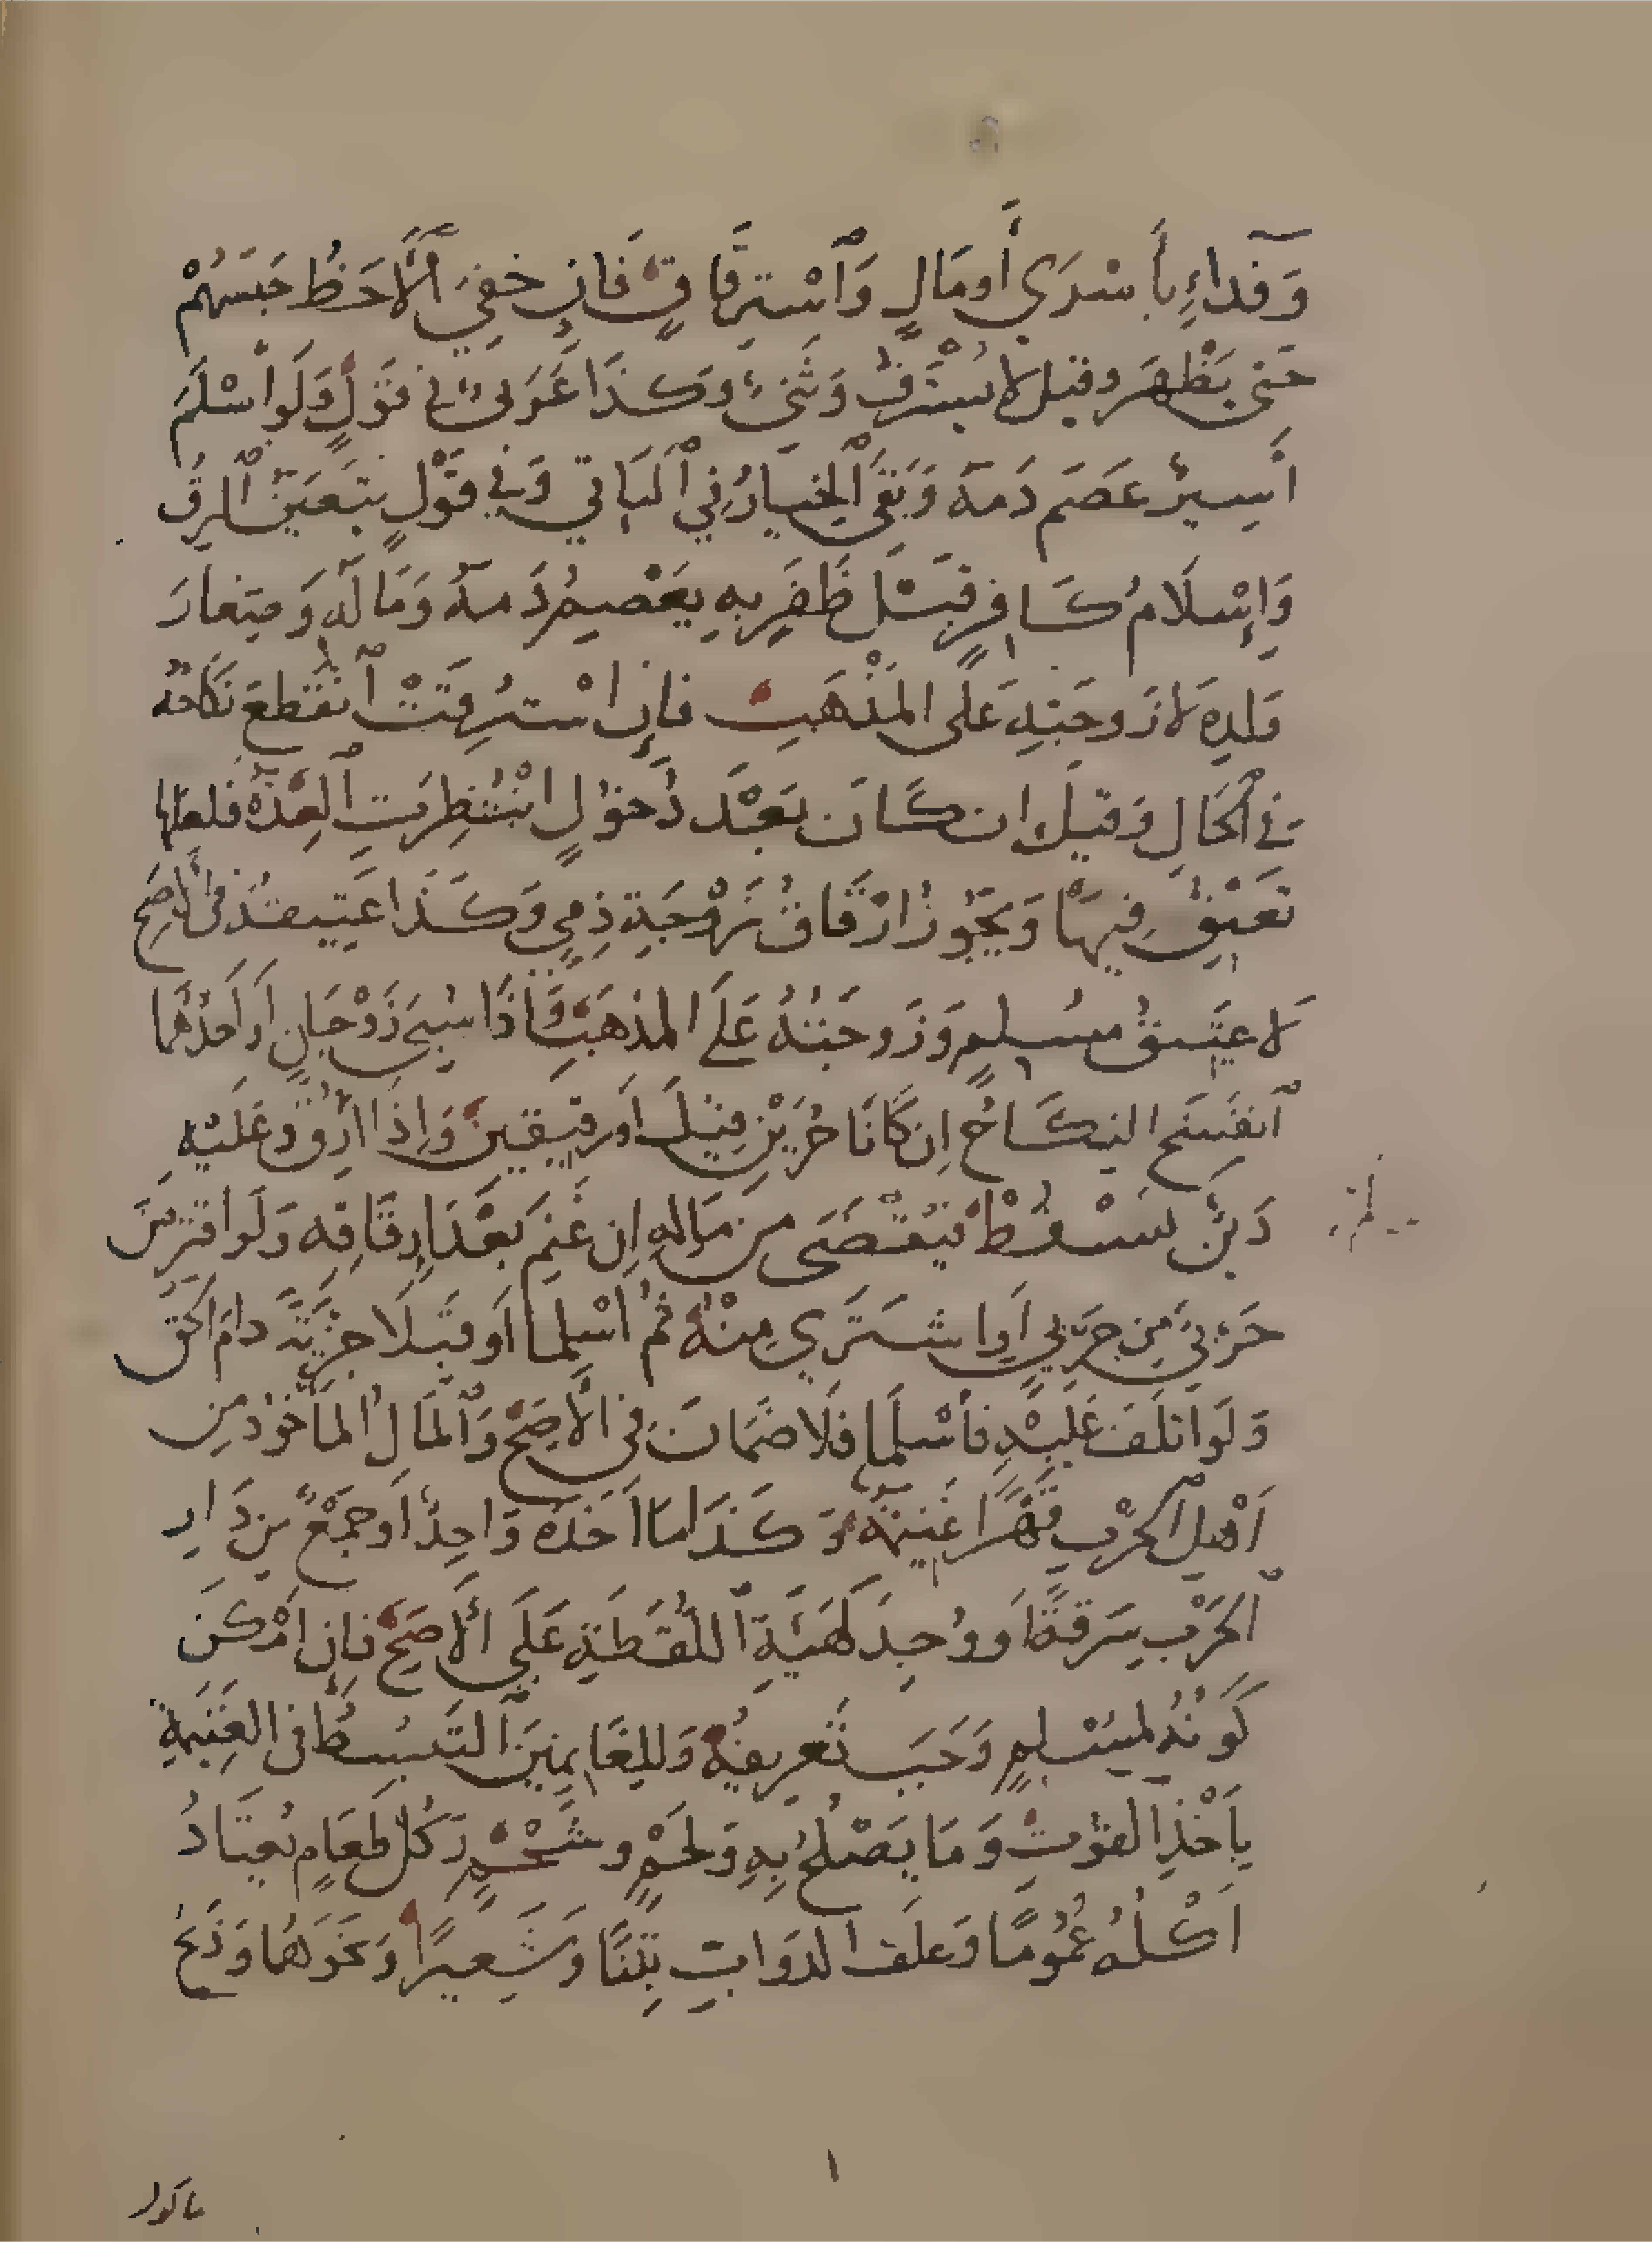 وَفِدَاءٍ بِأَسْرَى أَوْ مَالٍ وَاسْتِرْقَاقٍ فَإِنْ خَفِيَ الْأَحَظُّ حَبَسَهُمْ
حَتَّى يَظْهَرَ وَقِيلَ لَا يُسْتَرَقُّ وَثَنِيٌّ وَكَذَا عَرَبِيٌّ فِي قَوْلٍ وَلَوْ أَسْلَمَ
أَسِيرٌ عَصَمَ دَمَهُ وَبَقِيَ الْخِيَارُ فِي الْبَاقِي وَفِي قَوْلٍ يَتَعَيَّنُ الرِّقُّ
وَإِسْلَامُ كَافِرٍ قَبْلَ ظَفَرٍ بِهِ يَعْصِمُ دَمَهُ وَمَالَهُ وَصِغَارَ
وَلَدِهِ لَا زَوْجَتِهِ عَلَى الْمَذْهَبِ فَإِنِ اسْتُرِقَّتْ انْقَطَعَ نِكَاحُهُ
فِي الْحَالِ وَقِيلَ إِنْ كَانَ بَعْدَ دُخُولٍ انْتُظِرَتِ الْعِدَّةُ فَلَعَلَّهَا
تَعْتِقُ فِيهَا وَيَجُوزُ إِرْقَاقُ زَوْجَةِ ذِمِّيٍّ وَكَذَا عَتِيقُهُ فِي الْأَصَحِّ
لَا عَتِيقُ مُسْلِمٍ وَزَوْجَتُهُ عَلَى الْمَذْهَبِ وَإِذَا سُبِيَ زَوْجَانِ أَوْ أَحَدُهُمَا
انْفَسَخَ النِّكَاحُ إِنْ كَانَا حُرَّيْنِ قِيلَ أَوْ رَقِيقَيْنِ وَإِذَا أُرِقَّ وَعَلَيْهِ
دَيْنٌ لَمْ يَسْقُطْ فَيُقْضَى مِنْ مَالِهِ إِنْ غُنِمَ بَعْدَ إِرْقَاقِهِ وَلَوِ اقْتَرَضَ
حَرْبِيٌّ مِنْ حَرْبِيٍّ أَوِ اشْتَرَى مِنْهُ ثُمَّ أَسْلَمَا أَوْ قَبِلَا جِزْيَةً دَامَ الْحَقُّ
وَلَوْ أَتْلَفَ عَلَيْهِ فَأَسْلَمَا فَلَا ضَمَانَ فِي الْأَصَحِّ وَالْمَالُ الْمَأْخُوذُ مِنْ
أَهْلِ الْحَرْبِ قَهْرًا غَنِيمَةٌ وَكَذَا مَا أَخَذَهُ وَاحِدٌ أَوْ جَمْعٌ مِنْ دَارِ
الْحَرْبِ سَرِقَةً أَوْ وُجِدَ كَهَيْئَةِ اللُّقَطَةِ عَلَى الْأَصَحِّ فَإِنْ أَمْكَنَ
كَوْنُهُ لِمُسْلِمٍ وَجَبَ تَعْرِيفُهُ وَلِلْغَانِمِينَ التَّبَسُّطُ فِي الْغَنِيمَةِ
بِأَخْذِ الْقُوتِ وَمَا يَصْلُحُ بِهِ وَلَحْمٍ وَشَحْمٍ وَكُلِّ طَعَامٍ يُعْتَادُ
أَكْلُهُ عُمُومًا وَعَلَفِ الدَّوَابِّ تِبْنًا وَشَعِيرًا وَنَحْوَهُمَا وَذَبْحُ
ماكول